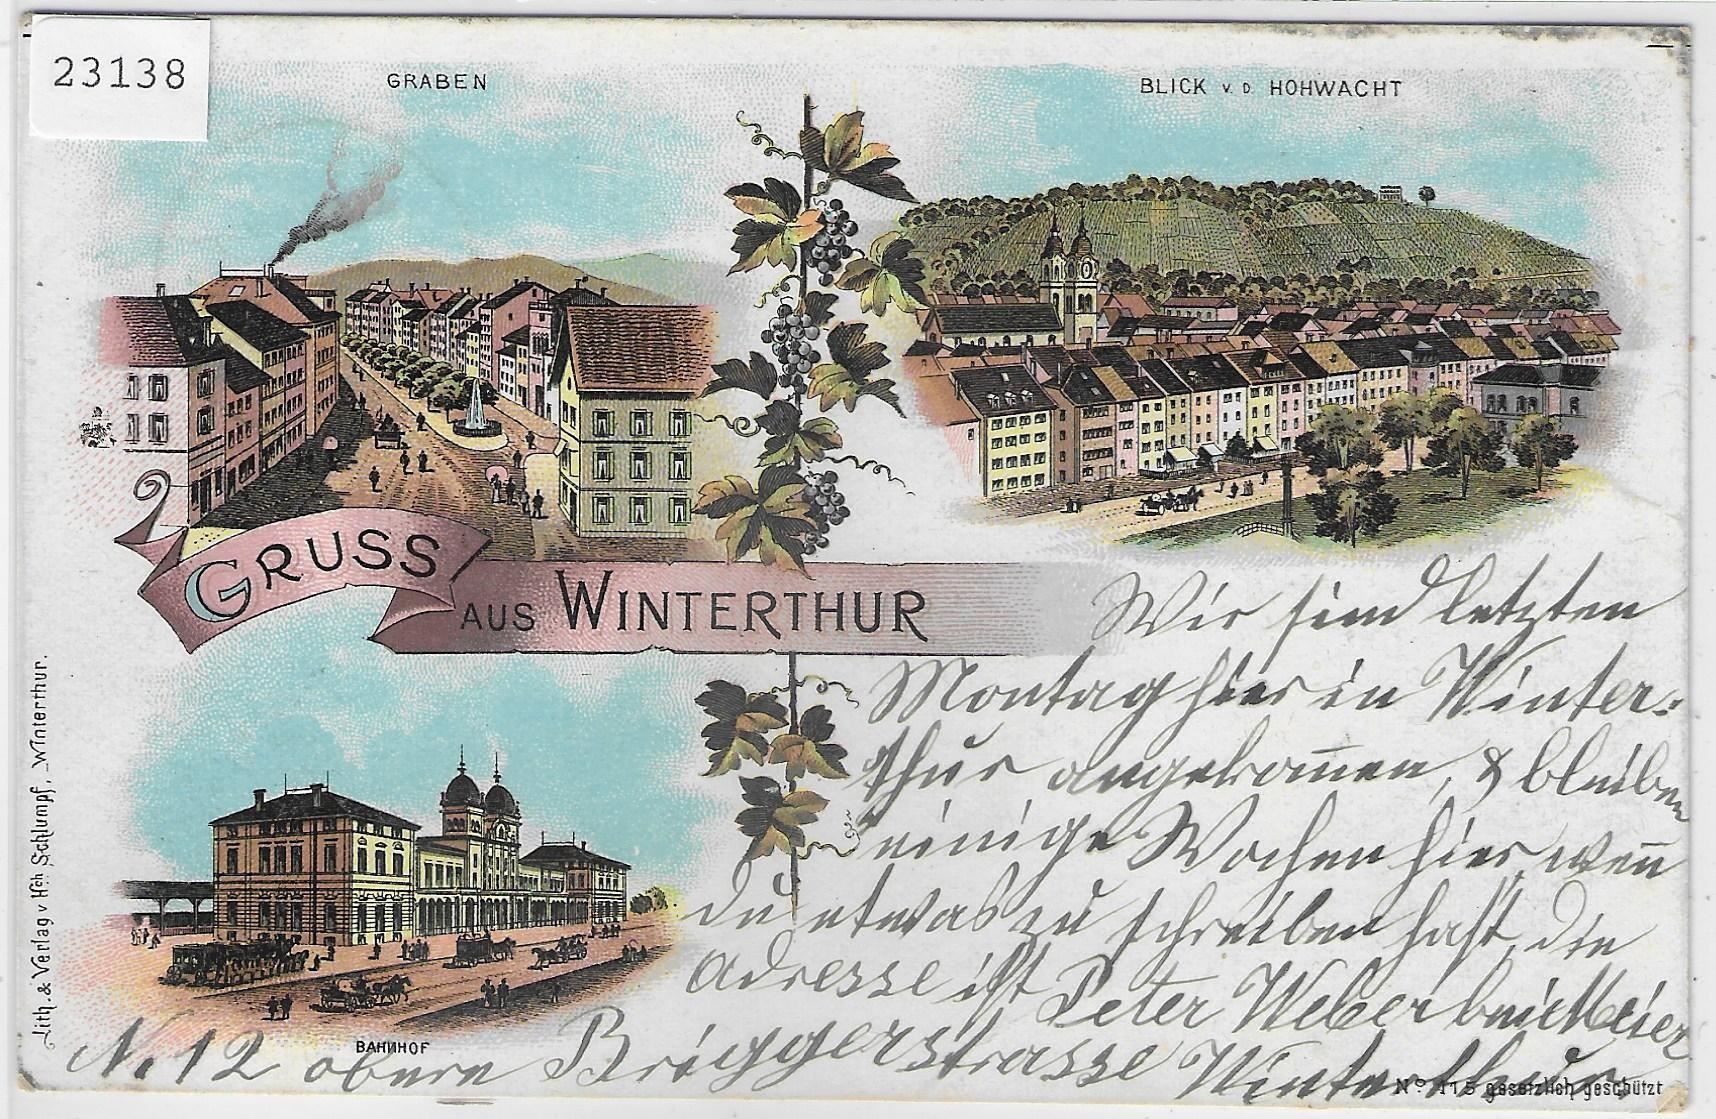 23138
GRABEN
BLICK v. D. HOHWACHT
GRUSS
AUS WINTERTHUR
Wir sind letzten
Montag hier in Winter=
thur angekom̅en, & bleiben
einige Wochen hier wen̅
du etwas zu schreiben hast, die
Adresse ist Peter Weber bei Meier
No 12 obere Briggerstrasse Winterthur
BAHNHOF
Lith. & Verlag v. Hch. Schlumpf, Winterthur.
No. 115 gesetzlich geschützt